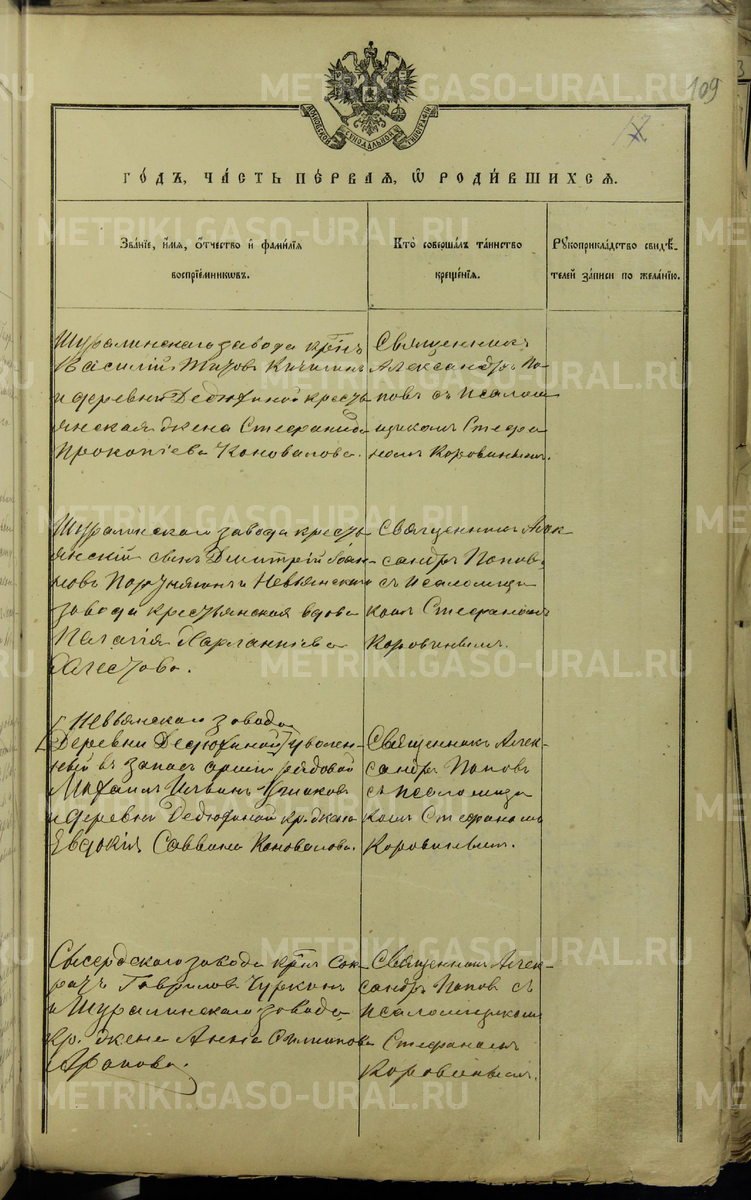 METRIKI.GASO-URAL.RU
109
МОСКОВСКОЙ СѴНОДАЛЬНОЙ ТИПОГРАФІИ
ГО́ДЪ, ЧА́СТЬ ПЕ́РВАЯ, Ѡ҆ РОДИ́ВШИХСѦ.
Зва́ніе, и҆́мя, ѻ҆́тчество и҆ фами́лїя
воспрїе́мникѡвъ.
Кто̀ соверша́лъ та́инство
креще́нїя.
Рꙋкоприкла́дство свидѣ́-
телей за́писи по жела́нїю.
Шуралинскаго завода крⷭ҇тнъ
Василій Титовъ Кичигинъ
и деревни Дедюхиной кресть-
янская жена Стефанида
Прокопіева Коновалова.
Священникъ
Александръ По-
повъ съ псалом-
щикомъ Стефа
номъ Коровинымъ.
METRIKI.GASO-URAL.RU
Шуралинскаго завода кресть-
янскій сынъ Дмитрій
и Невьянскаго
завода крестьянская вдова
Пелагія Харлампіева
Священникъ Алек-
сандръ Поповъ
съ псаломщи
комъ Стефаномъ
Коровинымъ.
METRIKI.GASO-URAL.RU
Невьянскаго завода
Деревни Дедюхиной уволен-
ный въ запасъ арміи рядовой
Михаилъ
и деревни Дедюхиной кр. жена
Евдокія Саввина Коновалова.
Священникъ Алек-
сандръ Поповъ
съ псаломщи
комъ Стефаномъ
Коровинымъ.
METRIKI.GASO-URAL.RU
Сысертскаго завода крⷭ҇тнъ Сок-
ратъ Гавриловъ Чуркинъ
и Шуралинскаго завода
кр. жена Анна Филиппова
Арапова.
Священникъ Алек-
сандръ Поповъ съ
псаломщикомъ
Стефаномъ
Коровинымъ.
METRIKI.GASO-URAL.RU